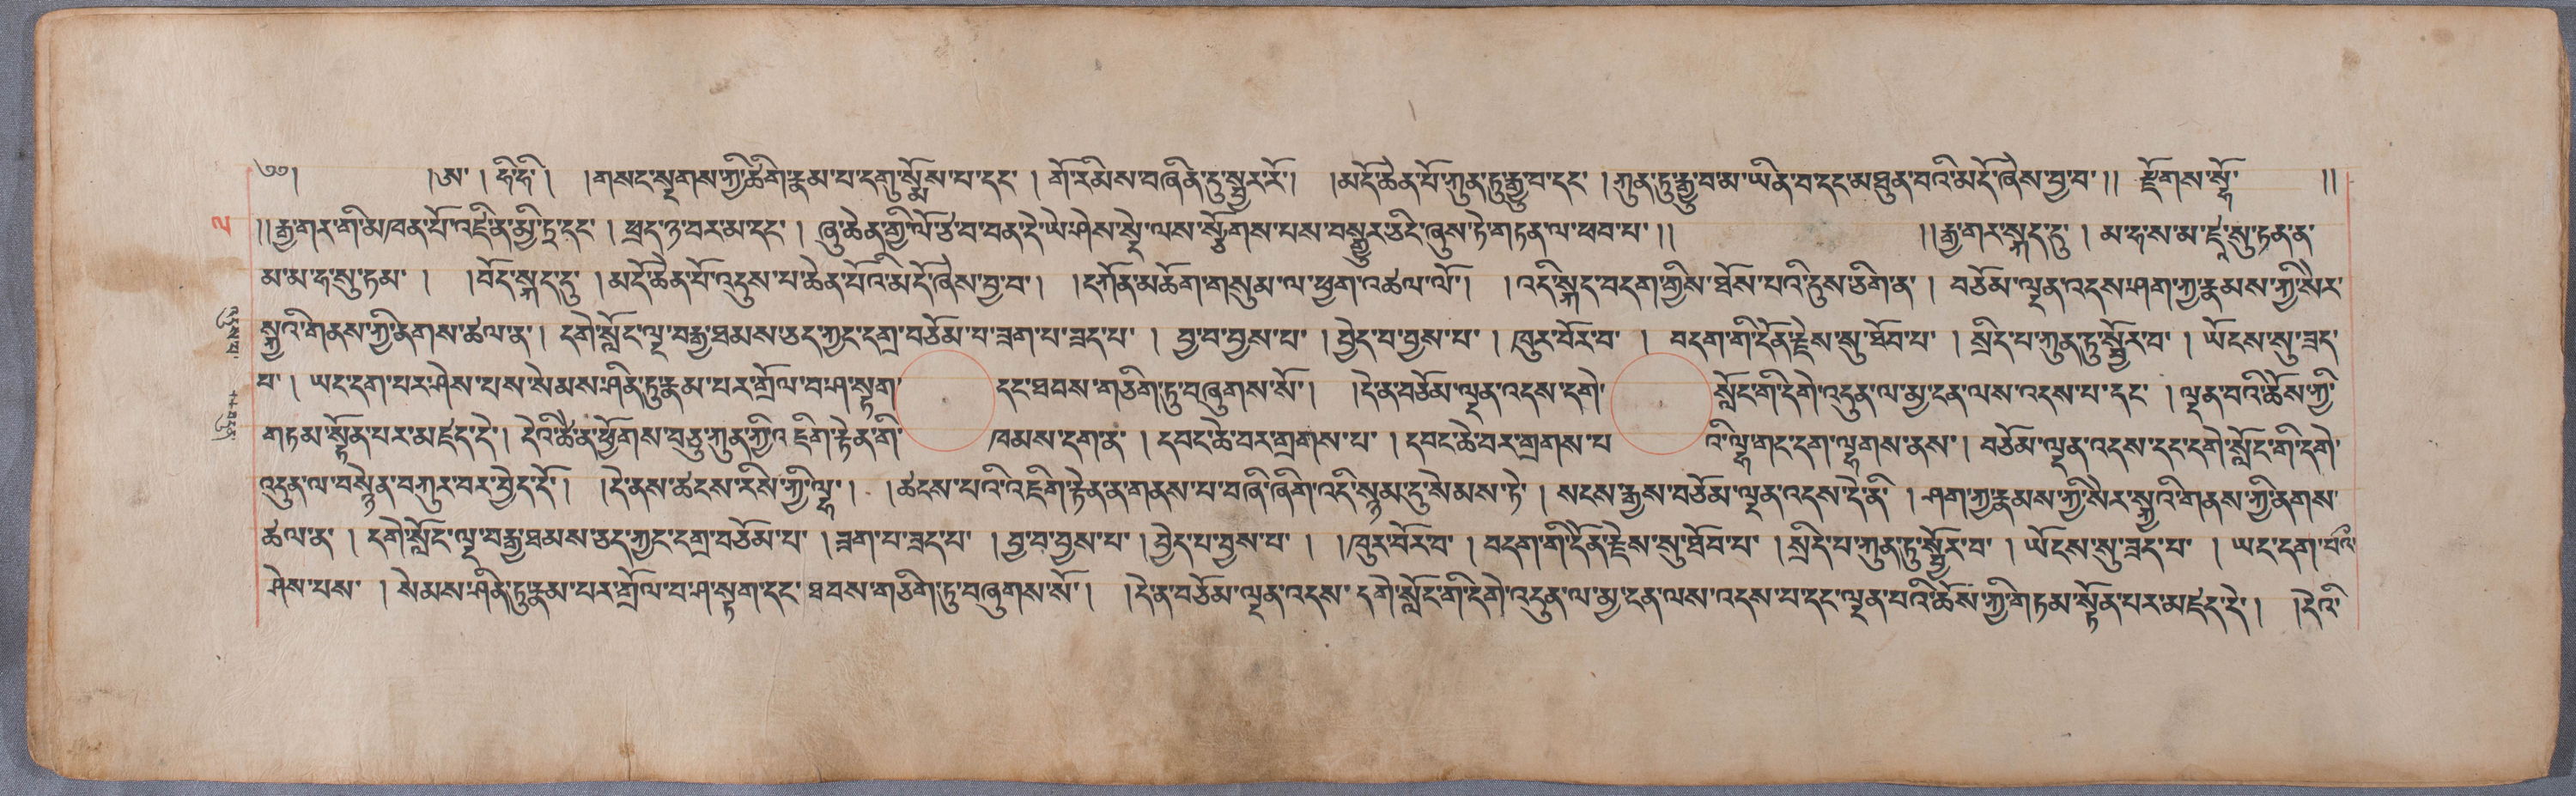 ༄༅། །ཨ་ །ཧི་ཧི། །གསང་སྔགས་ཀྱི་ཚིག་རྣམ་པ་དགུ་སྨོས་པ་དང་ །གོ་རིམས་བཞིན་དུ་སྦྱར་རོ། །མདོ་ཆེན་པོ་ཀུན་ཏུ་རྒྱུ་བ་དང་ །ཀུན་ཏུ་རྒྱུ་བ་མ་ཡིན་བ་དང་མཐུན་བའི་མདོ་ཞེས་བྱ་བ་།། རྫོགས་སྷོ་ །།
།།རྒྱ་གར་གི་མཁན་པོ་འཛིན་མྱི་ཏྲ་དང་ །ཕྲད་ཉ་བར་མ་དང་ །ཞུ་ཆེན་གྱི་ལོ་ཙ་བ་བན་དེ་ཡེ་ཤེས་སྡེ་ལས་སྩོགས་པས་བསྒྱུར་ཅིང་ཞུས་ཏེ་གཏན་ལ་ཕབ་པ་།། །།རྒྱ་གར་སྐད་དུ་ །མ་ཧ་ས་མ་ཛ་སུ་ཏྲན་ན་
མ་མ་ཧ་སུ་ཏྲམ་ །བོད་སྐད་དུ་ །མདོ་ཆེན་པོ་འདུས་པ་ཆེན་པོའི་མདོ་ཞེས་བྱ་བ་། །དཀོན་མཆོག་གསུམ་ལ་ཕྱག་འཚལ་ལོ་། །འདི་སྐད་བདག་གྱིས་ཐོས་པའི་དུས་ཅིག་ན་ །བཅོམ་ལྡན་འདས་ཤག་ཀྱ་རྣམས་ཀྱི་སེར་
སྐྱའི་གནས་ཀྱི་ནགས་ཚལ་ན་། དགེ་སློང་ལྔ་བརྒྱ་ཐམས་ཅད་ཀྱང་དགྲ་བཅོམ་བ་ཟག་པ་ཟད་པ་ །བྱ་བ་བྱས་པ་ །བྱེད་བ་བྱས་པ་ །ཁུར་བོར་བ་ །བདག་གི་དོན་རྗེས་སུ་ཐོབ་པ་ །སྲིད་པ་ཀུན་ཏུ་སྦྱོར་བ་ །ཡོངས་སུ་ཟད་
པ་། ཡང་དག་པར་ཤེས་པས་སེམས་ཤིན་ཏུ་རྣམ་པར་གྲོལ་བ་ཤ་སྟག་ དང་ཐབས་གཅིག་ཏུ་བཞུགས་སོ། །དེ་ན་བཅོམ་ལྡན་འདས་དགེ་ སློང་གི་དགེ་འདུན་ལ་མྱ་ངན་ལས་འདས་པ་དང་ །ལྡན་བའི་ཆོས་ཀྱི་
གཏམ་སྟོན་པར་མཛད་དེ་། དེའི་ཚེ་ན་ཕྱོགས་བཅུ་ཀུན་ཀྱི་འཇིག་རྟེན་གི་ ཁམས་དག་ན་ །དབང་ཆེ་བར་གྲགས་པ་ །དབང་ཆེ་བར་གྲགས་པ འི་ལྷ་གང་དག་ལྷགས་ནས་། བཅོམ་ལྡན་འདས་དང་དགེ་སློང་གི་དགེ་
འདུན་ལ་བསྙེན་བཀུར་བར་བྱེད་དོ་། །དེ་ནས་ཚངས་རིས་ཀྱི་ལྷ་། །ཚངས་པའི་འཇིག་རྟེན་ན་གནས་པ་བཞི་ཞིག་འདི་སྙམ་དུ་སེམས་ཏེ་ །སངས་རྒྱས་བཅོམ་ལྡན་འདས་དེ་ནི་ །ཤག་ཀྱ་རྣམས་ཀྱི་སེར་སྐྱའི་གནས་ཀྱི་ནགས་
ཚལ་ན་ །དགེ་སློང་ལྔ་བརྒྱ་ཐམས་ཅད་ཀྱང་དགྲ་བཅོམ་པ་ །ཟག་པ་ཟད་པ་ །བྱ་བ་བྱས་པ་ །བྱེད་པ་བྱས་པ་ །ཁུར་བོར་བ་ །བདག་གི་དོན་རྗེས་སུ་ཐོབ་པ་ །སྲིད་པ་ཀུན་ཏུ་སྦྱོར་བ་ །ཡོངས་སུ་ཟད་པ་ །ཡང་དག་
ཤེས་པས་ །སེམས་ཤིན་ཏུ་རྣམ་པར་གྲོལ་བ་ཤ་སྟག་དང་ཐབས་གཅིག་ཏུ་བཞུགས་སོ་། །དེ་ན་བཅོམ་ལྡན་འདས་ དགེ་སློང་གི་དགེ་འདུན་ལ་མྱ་ངན་ལས་འདས་པ་དང་ལྡན་པའི་ཆོས་ཀྱི་གཏམ་སྟོན་པར་མཛད་དེ་། །དེའི་